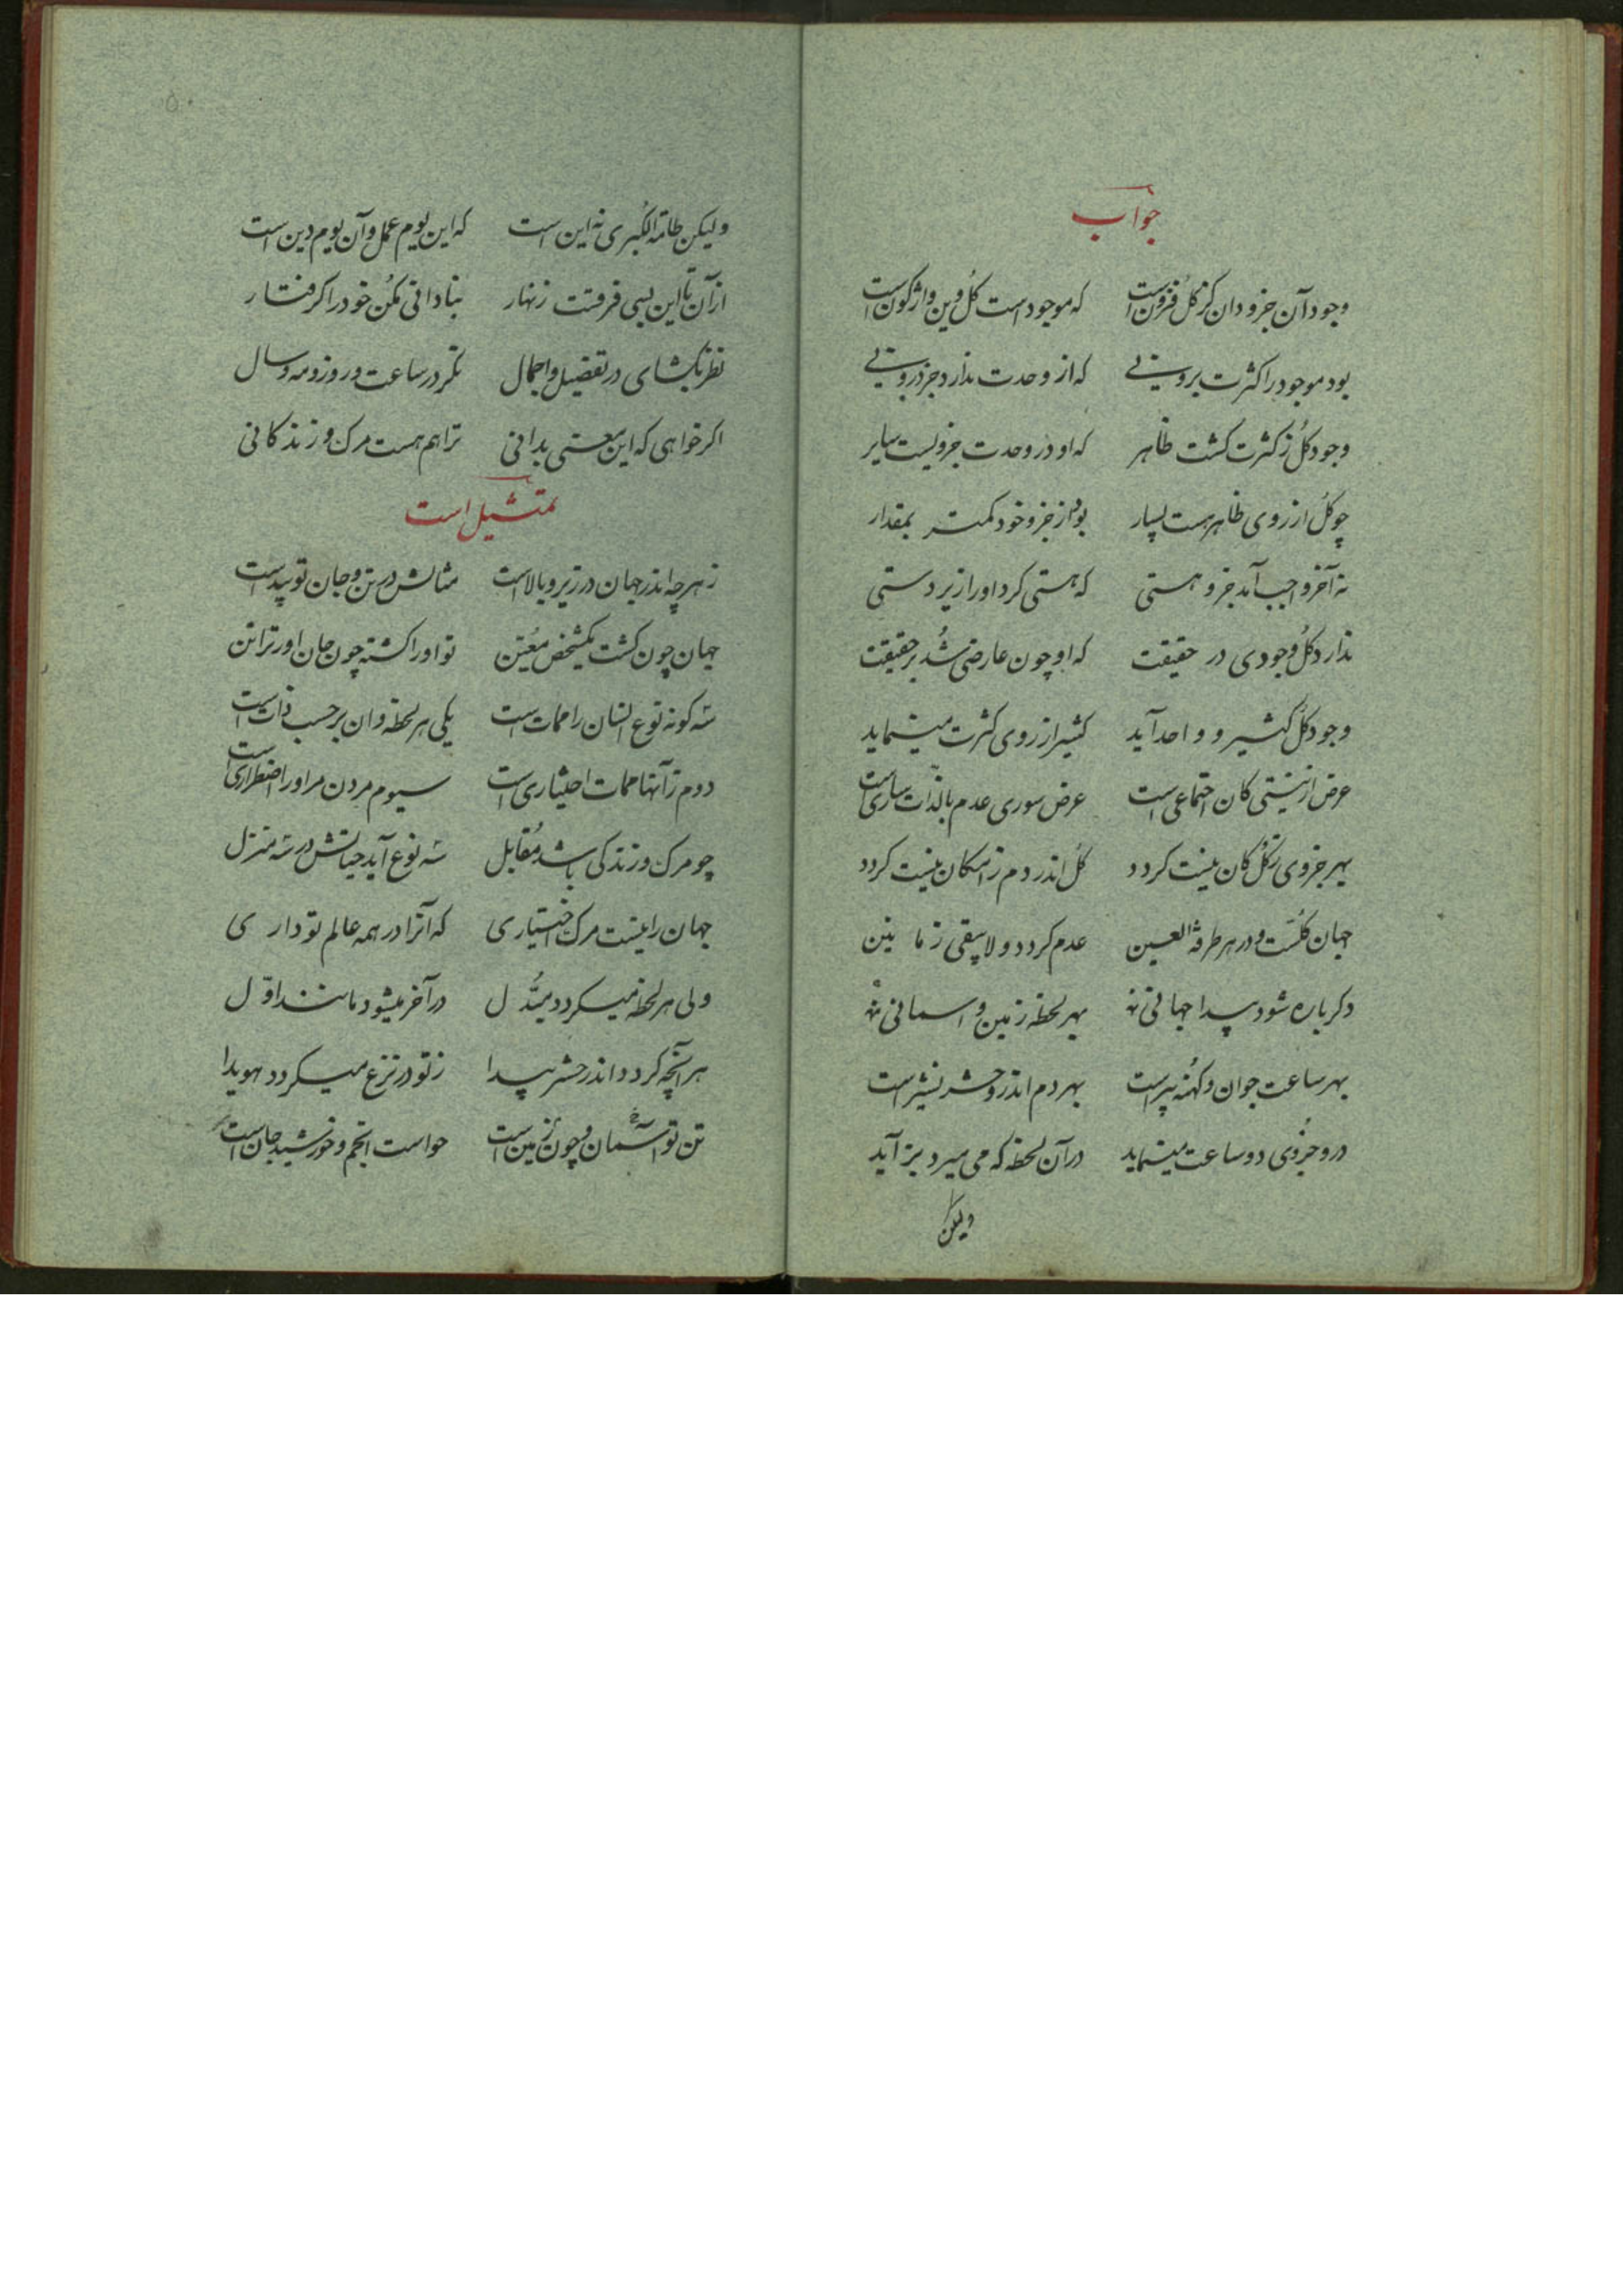 جواب
وجود آن جزو دان کز کل فزونست که موجود است کل وین واژگون است
بود موجود را کثرت برونی که از وحدت ندارد جز درونی
وجود کل ز کثرت گشت ظاهر که او در وحدت جزویست سایر
چو کل از روی ظاهر هست بسیار بود از جزو خود کمتر بمقدار
نه آخر واجب آمد جزو هستی که هستی کرد او را زیر دستی
ندارد کل وجودی در حقیقت که او چون عارضی شد بر حقیقت
وجود کل کثیر و واحد آید کثیر از روی کثرت مینماید
عرض از نیستی کان اجتماعی است عرض سوری عدم بالذات ساری است
بهر جزوی ز کل کان نیست گردد کل اندر دم ز امکان نیست گردد
جهان کلست و در هر طرفة العین عدم گردد و لا یبقی زمانین
دگرباره شود پیدا جهانی نه بهر لحظه زمین و اسمانی نه
بهر ساعت جوان و کهنه پیر است بهر دم اندرو حشر نشیر است
درو جزوی دو ساعت مینماید در آن لحظه که می میرد بزآید
ولیکن
۵۰
ولیکن طامة الکبری نه این است که این یوم عمل و آن یوم دین است
از آن تا این بسی فرقت زنهار بنادانی مکن خود را گرفتار
نظر بگشای در تفضیل و اجمال نگر در ساعت و روز و مه و سال
اگر خواهی که این معنی بدانی ترا هم هست مرگ و زندگانی
تمثیل است
ز هر چه اندر جهان در زیر و بالاست مثالش در تن و جان تو پیداست
جهان چون گشت یکشخص معین تو او را گشته چون جان او ترا تن
سه گونه نوع انسان را ممات است یکی هر لحظه وان بر حسب ذات است
دوم زآنها ممات اختیاری است سیوم مردن مر او را اضطراری است
چو مرگ و زندگی باشد مقابل سه نوع آید حیاتش در سه منزل
جهان را نیست مرگ اختیاری که آنرا در همه عالم تو داری
ولی هر لحظه میگردد مبدل در آخر میشود مانند اول
هر آنچه گردد اندر حشر پیدا ز تو در نزع میگردد هویدا
تن تو آسمان و چون زمین است حواست انجم و خورشید جان است